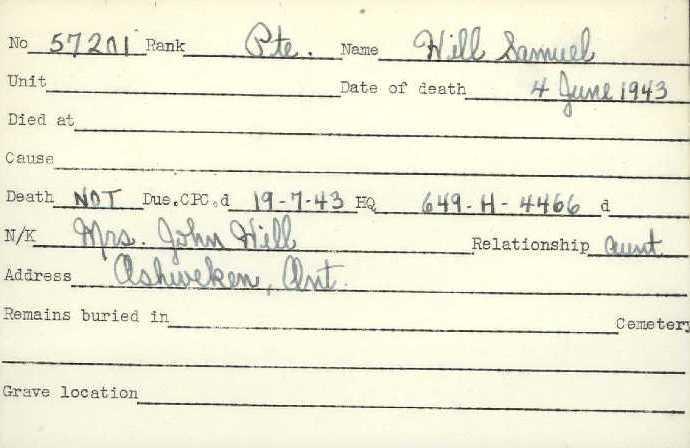 No 57201 Rank Pte. Name Hill Samuel
Unit Date of death 4 June 1943
Died at
Cause
Death NOT Due. CPC. d 19-7-43 HQ 649-H-4466 d
N/K Mrs. John Hill Relationship aunt
Address Ashweken, Ont.
Remains buried in Cemetery
Grave location